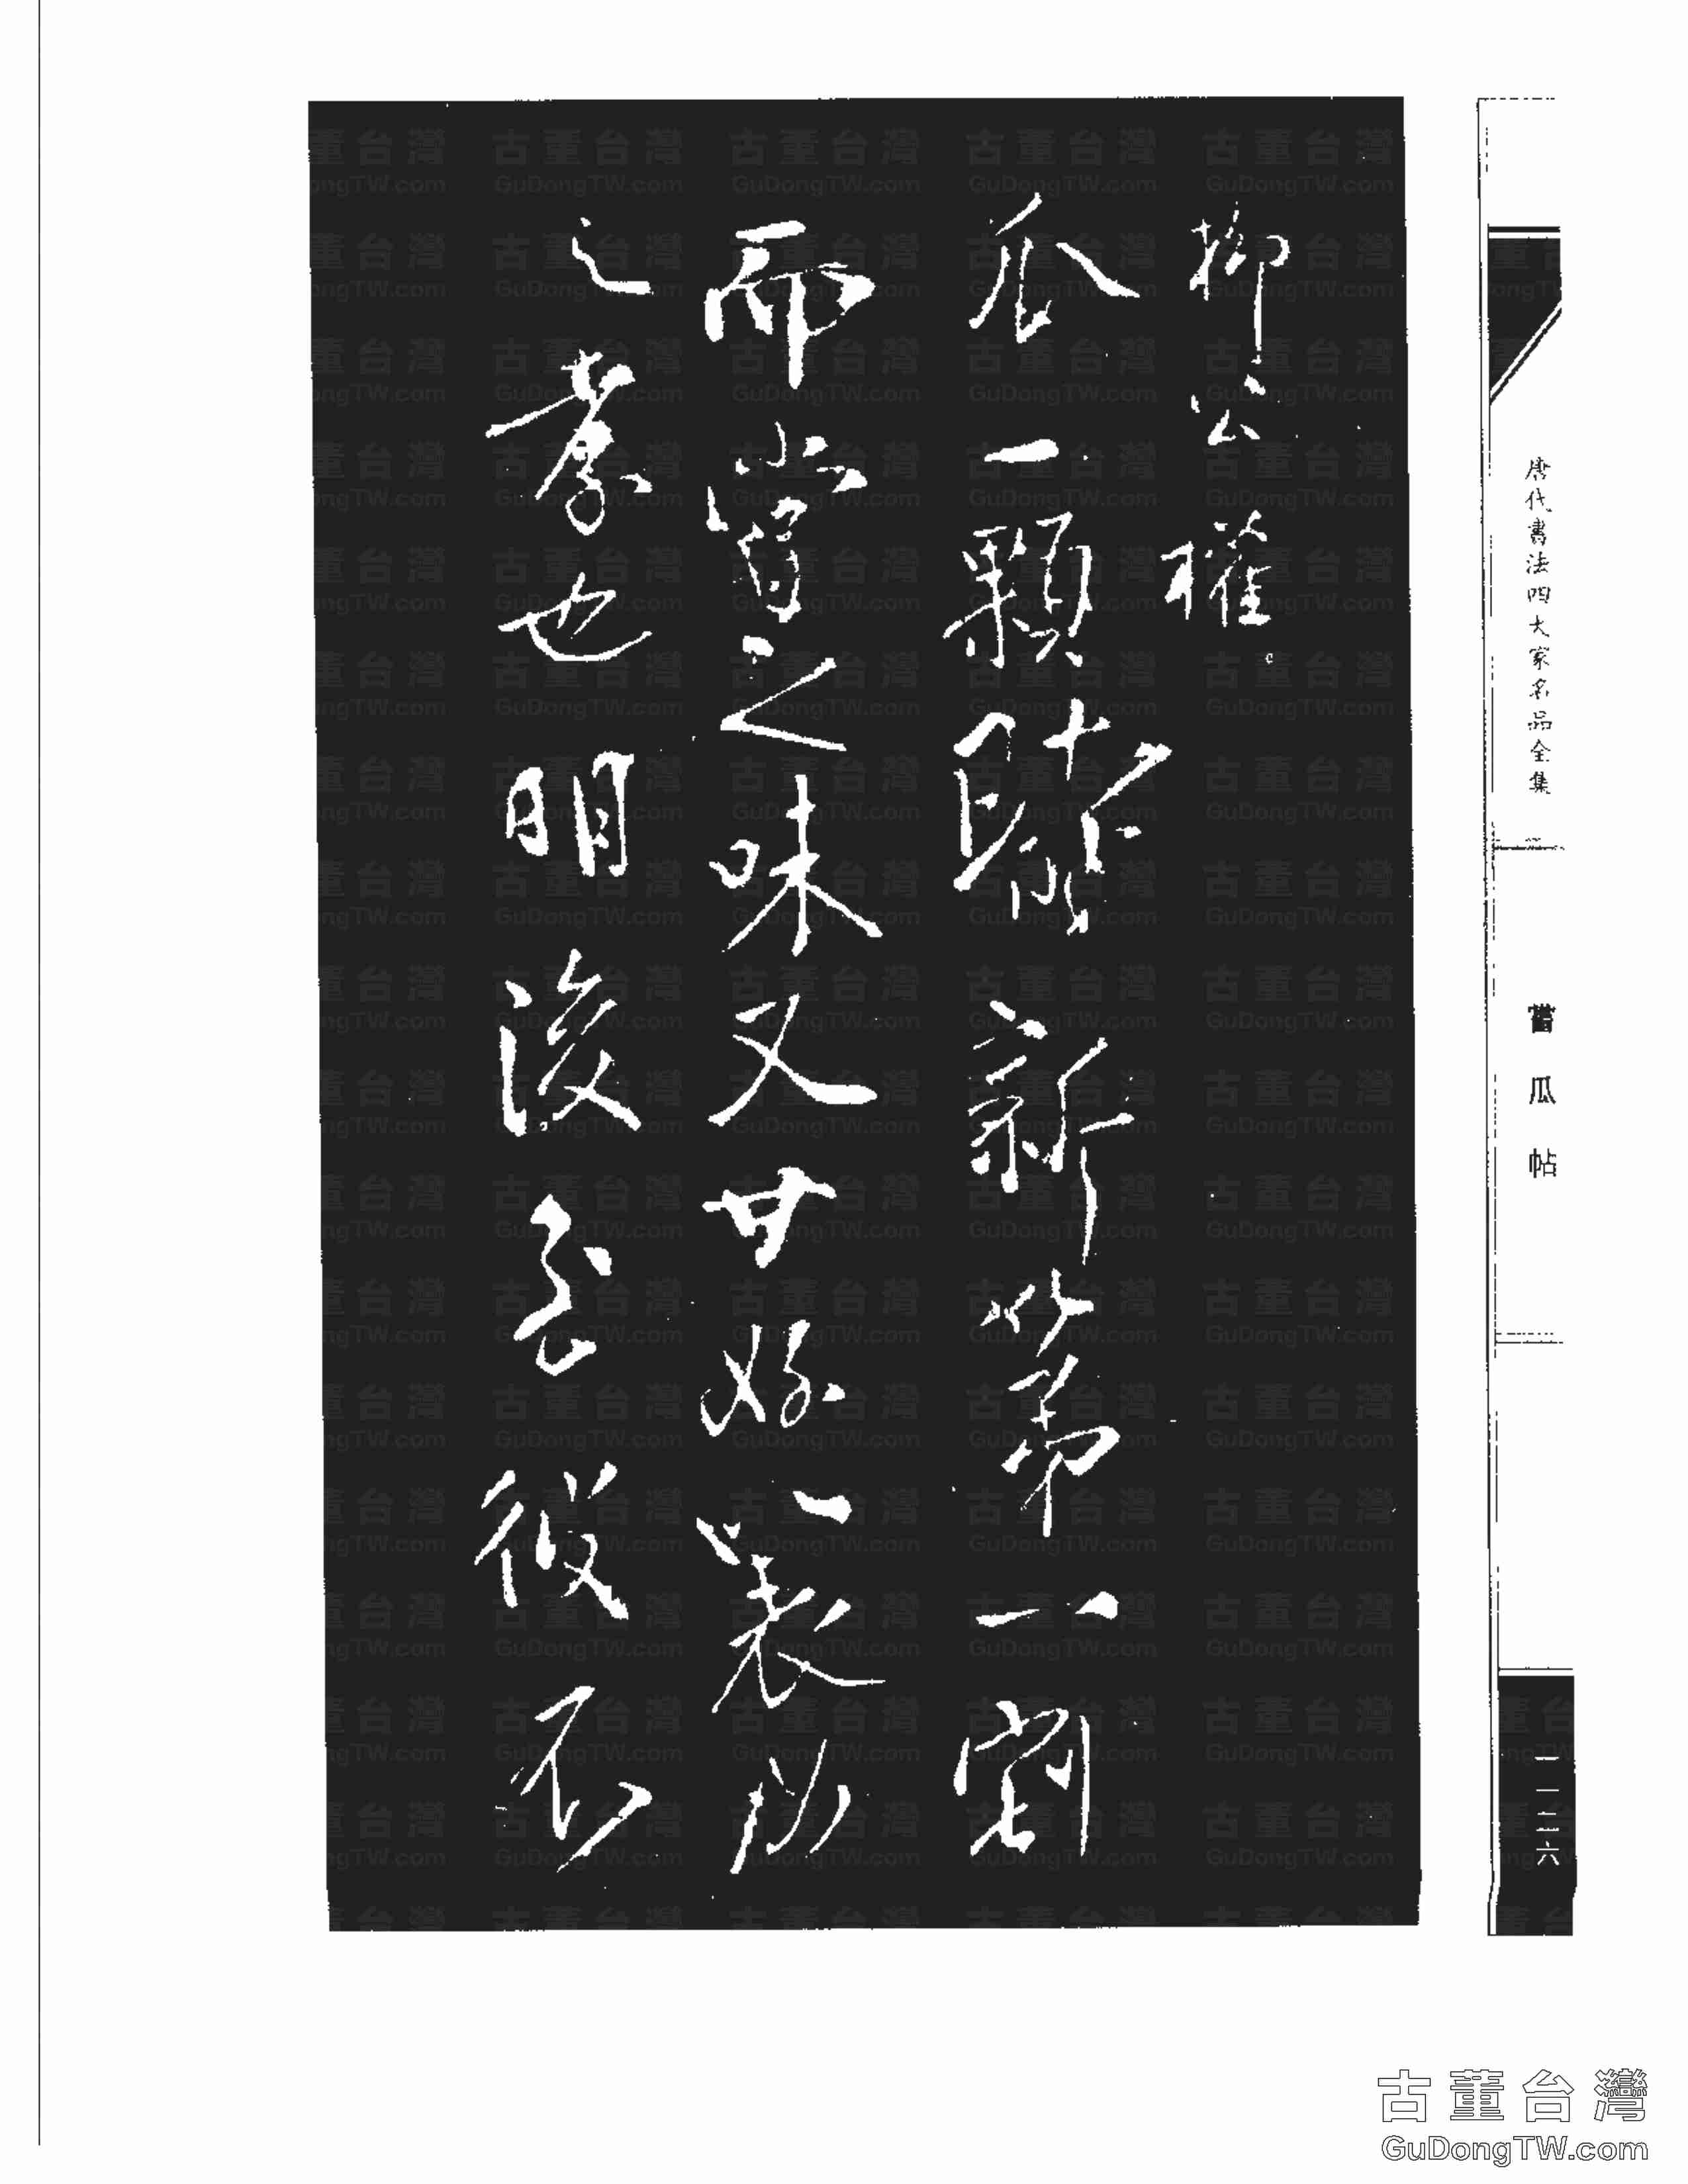 唐代書法四大家名品全集
嘗瓜帖
一一二六
柳公權
瓜一顆新第一割
而嘗之味又甘好以表
之孝也明後至不
古董台灣
GuDongTW.com